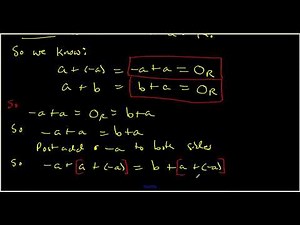 So we know:
a + (-a) = -a + a = 0_R
a + b = b + a = 0_R
So
-a + a = 0_R = b + a
So -a + a = b + a
Post add of -a to both sides
So -a + [a + (-a)] = b + [a + (-a)]